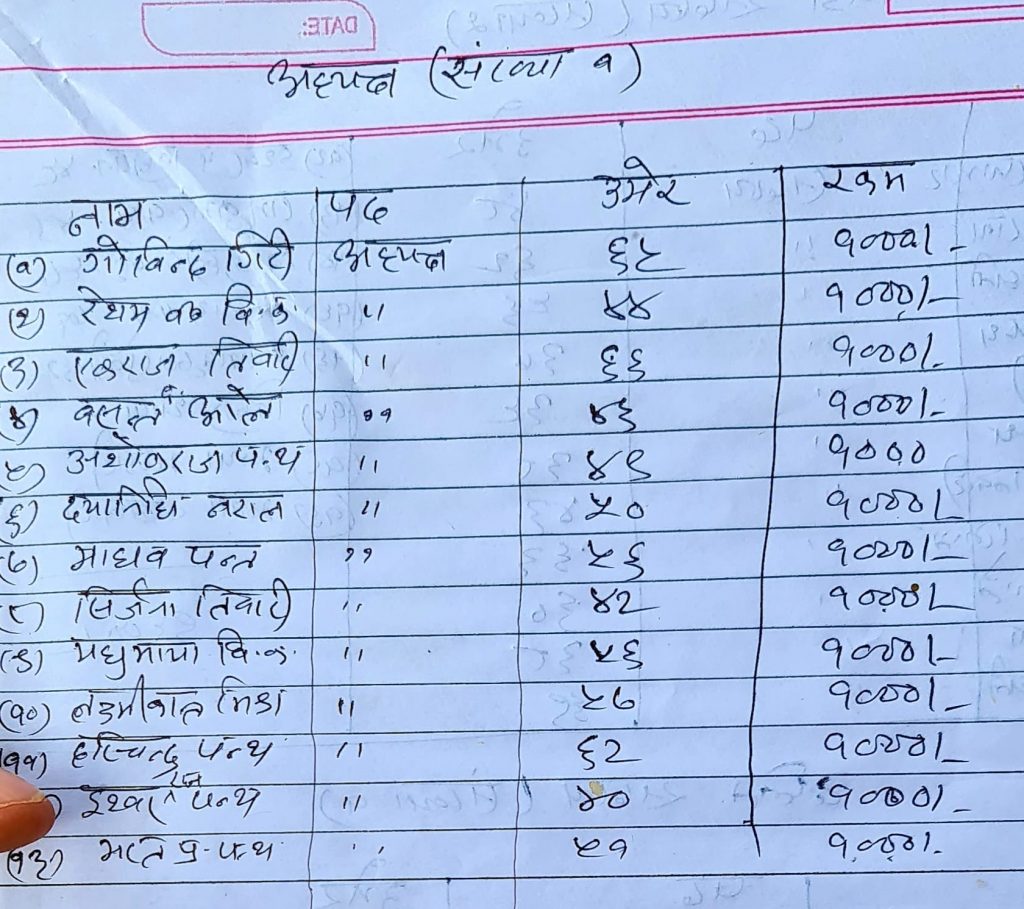 अध्यक्ष (संख्या १)
नाम पद उमेर रकम
(१) गोविन्द गिरी अध्यक्ष ६५ १०००।-
(२) रेशम बि.क. " ४४ १०००।-
(३) एकराज तिवारी " ६६ १०००।-
(४) वसन्त ओली " ४६ १०००।-
(५) अशोकराज पन्थ " ४९ १०००
(६) दयानिधि " ५० १०००।-
(७) माधव पन्त " ५६ १०००।-
(८) सिर्जना तिवारी " ४२ १०००।-
(९) मधुमाया बि.क. " ५६ १०००।-
(१०) लक्ष्मीलाल मिश्र " ५७ १०००।-
(११) हरिचन्द्र पन्थ " ६२ १०००।-
ईश्वर राज पन्थ " ४० १०००।-
(१३) भरत प्र. पन्थ " ५१ १०००।-